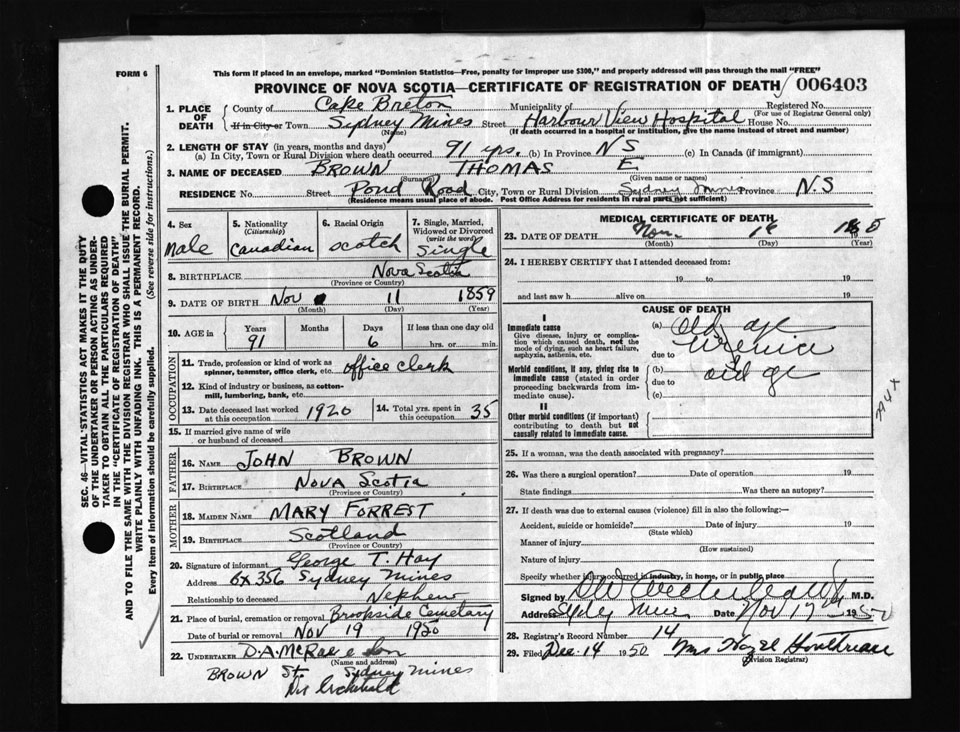 FORM 6
This form if placed in an envelope, marked "Dominion Statistics—Free, penalty for improper use $300," and properly addressed will pass through the mail "FREE"
PROVINCE OF NOVA SCOTIA—CERTIFICATE OF REGISTRATION OF DEATH 006403
1. PLACE OF DEATH County of Cape Breton Municipality of Registered No. (For use of Registrar General only)
If in City or Town Sydney Mines (Name) Street Harbour View Hospital House No.
(If death occurred in a hospital or institution, give the name instead of street and number)
2. LENGTH OF STAY (in years, months and days)
(a) In City, Town or Rural Division where death occurred 91 yrs. (b) In Province NS (c) In Canada (if immigrant)
3. NAME OF DECEASED BROWN (Surname) THOMAS E. (Given name or names)
RESIDENCE No. Street Pond Road City, Town or Rural Division Sydney Mines Province N.S
(Residence means usual place of abode. Post Office Address for residents in rural parts not sufficient)
4. Sex Male
5. Nationality (Citizenship) Canadian
6. Racial Origin Scotch
7. Single, Married, Widowed or Divorced (write the word) Single
8. BIRTHPLACE Nova Scotia
(Province or Country)
9. DATE OF BIRTH Nov 11 1859
(Month) (Day) (Year)
10. AGE in Years 91 Months Days 6 If less than one day old hrs. or min.
OCCUPATION
11. Trade, profession or kind of work as spinner, teamster, office clerk, etc. office clerk
12. Kind of industry or business, as cotton-mill, lumbering, bank, etc.
13. Date deceased last worked at this occupation 1920 14. Total yrs. spent in this occupation 35
15. If married give name of wife or husband of deceased
FATHER
16. NAME JOHN BROWN
17. BIRTHPLACE NOVA SCOTIA
(Province or Country)
MOTHER
18. MAIDEN NAME MARY FORREST
19. BIRTHPLACE Scotland
(Province or Country)
20. Signature of informant George T. Hay
Address Bx 356 Sydney Mines
Relationship to deceased Nephew
21. Place of burial, cremation or removal Brookside Cemetary
Date of burial or removal NOV 19 1950
22. UNDERTAKER D.A. McRae & Son
(Name and address)
BROWN St. Sydney Mines
Dr Archibald
MEDICAL CERTIFICATE OF DEATH
23. DATE OF DEATH Nov. 18 19
(Month) (Day) (Year)
24. I HEREBY CERTIFY that I attended deceased from:
19 to 19
and last saw h alive on 19
CAUSE OF DEATH
I
Immediate cause
Give disease, injury or complication which caused death, not the mode of dying, such as heart failure, asphyxia, asthenia, etc.
(a) Old age
due to
Morbid conditions, if any, giving rise to immediate cause (stated in order proceeding backwards from immediate cause).
(b) old age
due to
(c)
II
Other morbid conditions (if important) contributing to death but not causally related to immediate cause.
25. If a woman, was the death associated with pregnancy?
26. Was there a surgical operation? Date of operation 19
State findings Was there an autopsy?
27. If death was due to external causes (violence) fill in also the following:—
Accident, suicide or homicide? Date of injury 19
(State which)
Manner of injury
(How sustained)
Nature of injury
Specify whether injury occurred in industry, in home, or in public place
Signed by M.D.
Address Sydney Mines Date Nov 17 1950
28. Registrar's Record Number 14
29. Filed Dec. 14 1950 Mrs Hazel
(Division Registrar)
SEC. 46—VITAL STATISTICS ACT MAKES IT THE DUTY
OF THE UNDERTAKER OR PERSON ACTING AS UNDERTAKER TO OBTAIN ALL THE PARTICULARS REQUIRED
IN THE "CERTIFICATE OF REGISTRATION OF DEATH"
AND TO FILE THE SAME WITH THE DIVISION REGISTRAR WHO SHALL ISSUE THE BURIAL PERMIT.
WRITE PLAINLY WITH UNFADING INK. THIS IS A PERMANENT RECORD.
Every item of information should be carefully supplied. (See reverse side for instructions.)